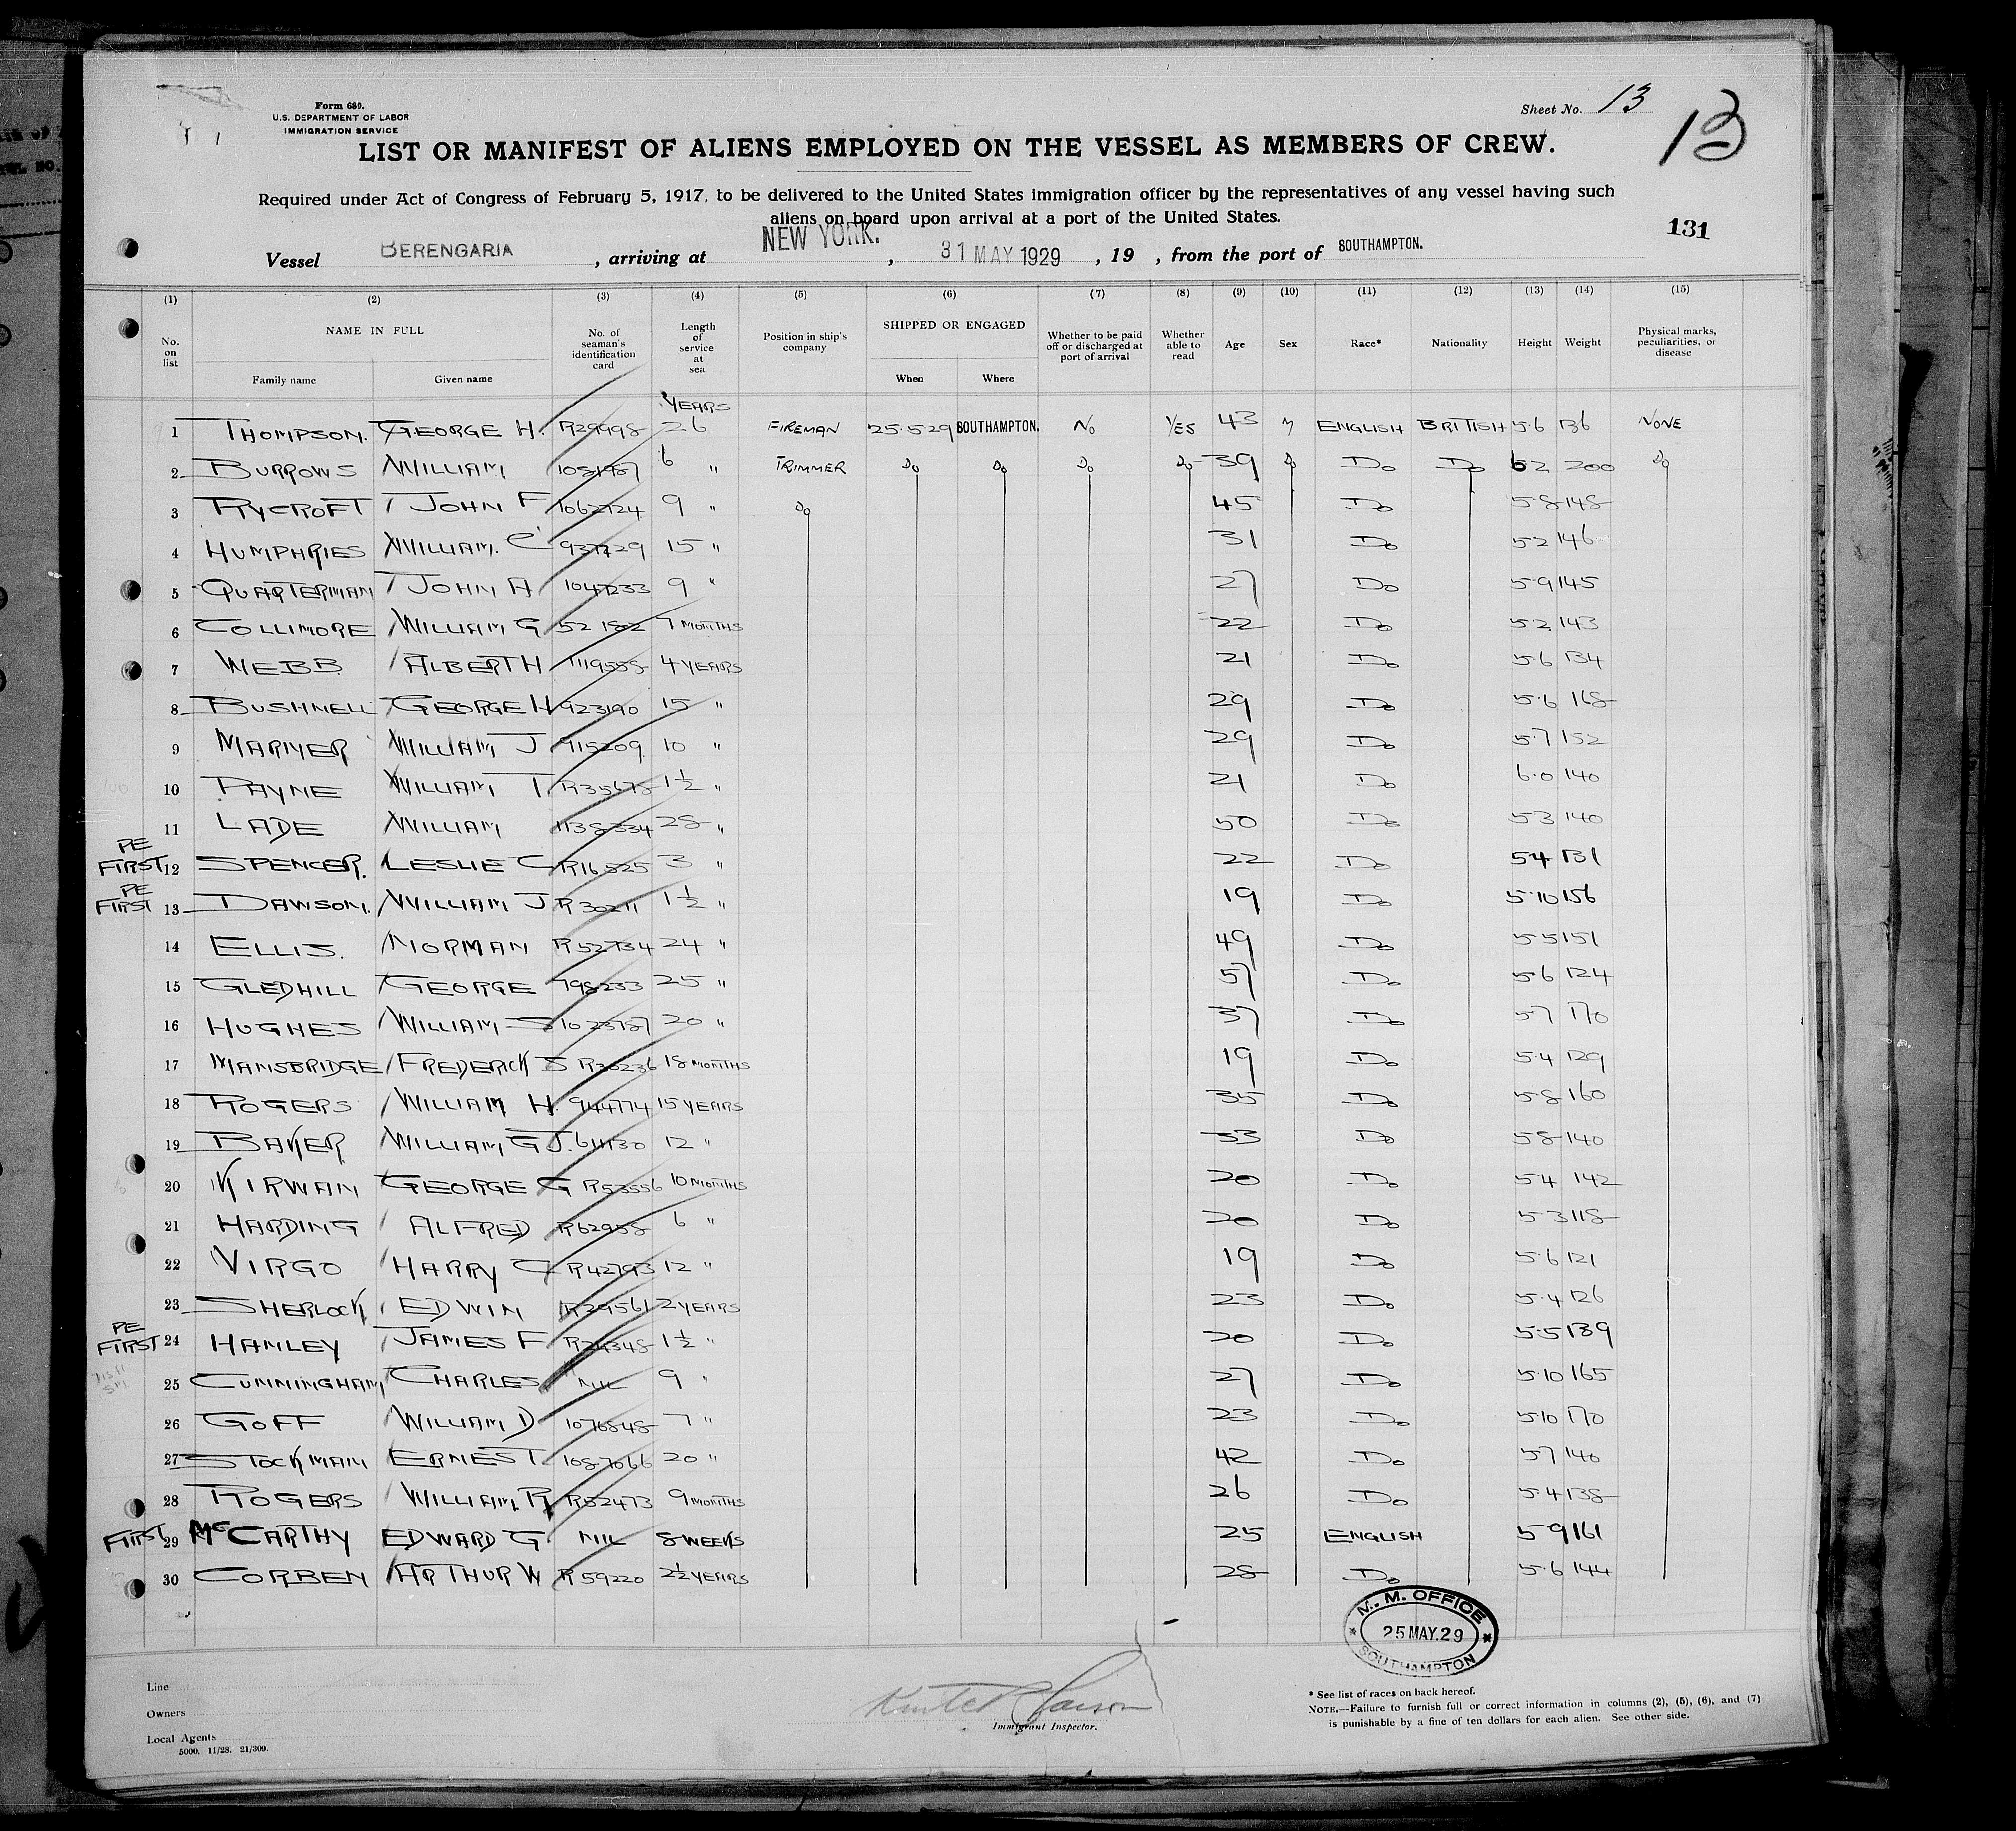 Form 680.
U.S. DEPARTMENT OF LABOR
IMMIGRATION SERVICE
Sheet No. 13
13
LIST OR MANIFEST OF ALIENS EMPLOYED ON THE VESSEL AS MEMBERS OF CREW.
Required under Act of Congress of February 5, 1917, to be delivered to the United States immigration officer by the representatives of any vessel having such
aliens on board upon arrival at a port of the United States.
131
Vessel BERENGARIA, arriving at NEW YORK., 31 MAY 1929, 19 , from the port of SOUTHAMPTON.
(1) (2) (3) (4) (5) (6) (7) (8) (9) (10) (11) (12) (13) (14) (15)
No. on list NAME IN FULL Family name Given name No. of seaman's identification card Length of service at sea Position in ship's company SHIPPED OR ENGAGED When Where Whether to be paid off or discharged at port of arrival Whether able to read Age Sex Race* Nationality Height Weight Physical marks, peculiarities, or disease
YEARS
1 THOMPSON. GEORGE H. R29998 26 FIREMAN 25.5.29 SOUTHAMPTON. NO YES 43 M ENGLISH BRITISH 5.6 136 NONE
2 BURROWS WILLIAM 1051987 6 " TRIMMER Do Do Do Do 39 Do Do Do 6 2 200 Do
3 RYCROFT JOHN F 1062724 9 " Do 45 Do 5.8 148
4 HUMPHRIES WILLIAM. C 937729 15 " 31 Do 5.2 146
5 QUARTERMAN JOHN A 1047233 9 " 27 Do 5.9 145
6 COLLIMORE WILLIAM G 52182 7 MONTHS 22 Do 5.2 143
7 WEBB ALBERT H 1119558 4 YEARS 21 Do 5.6 134
8 BUSHNELL GEORGE H 923190 15 " 29 Do 5.6 168
9 MARINER WILLIAM J 915209 10 " 29 Do 5.7 152
10 PAYNE WILLIAM T R35678 1½ " 21 Do 6.0 140
11 LADE WILLIAM 1138334 28 " 50 Do 5.3 140
PE
FIRST 12 SPENCER. LESLIE C R16525 3 " 22 Do 5.4 131
PE
FIRST 13 DAWSON. WILLIAM J R30211 1½ " 19 Do 5.10 156
14 ELLIS. NORMAN R52734 24 " 49 Do 5.5 151
15 GLEDHILL GEORGE 798233 25 " 57 Do 5.6 124
16 HUGHES WILLIAM S 1023787 20 " 37 Do 5.7 170
17 MANSBRIDGE FREDERICK S R36236 18 MONTHS 19 Do 5.4 129
18 ROGERS WILLIAM H. 944774 15 YEARS 35 Do 5.8 160
19 BAKER WILLIAM G J. 611130 12 " 33 Do 5.8 140
20 KIRWAN GEORGE G R53556 10 MONTHS 20 Do 5.4 142
21 HARDING ALFRED R62958 6 " 20 Do 5.3 118
22 VIRGO HARRY R42793 12 " 19 Do 5.6 121
23 SHERLOCK EDWIN R29561 2 YEARS 23 Do 5.4 126
PE
FIRST 24 HANLEY JAMES F R24348 1½ " 20 Do 5.5 139
25 CUNNINGHAM CHARLES NIL 9 " 27 Do 5.10 165
26 GOFF WILLIAM D 1076848 7 " 23 Do 5.10 170
27 STOCKMAN ERNEST. 1087066 20 " 42 Do 5.7 140
28 ROGERS WILLIAM. R R52473 9 MONTHS 26 Do 5.4 138
FIRST 29 McCARTHY EDWARD G. NIL 8 WEEKS 25 ENGLISH 5.9 161
30 CORBEN ARTHUR W R 59220 2½ YEARS 28 Do 5.6 144
M. M. OFFICE
25 MAY.29
SOUTHAMPTON
Line
Owners
Local Agents
5000. 11/28. 21/309.
Immigrant Inspector.
* See list of races on back hereof.
NOTE.—Failure to furnish full or correct information in columns (2), (5), (6), and (7)
is punishable by a fine of ten dollars for each alien. See other side.